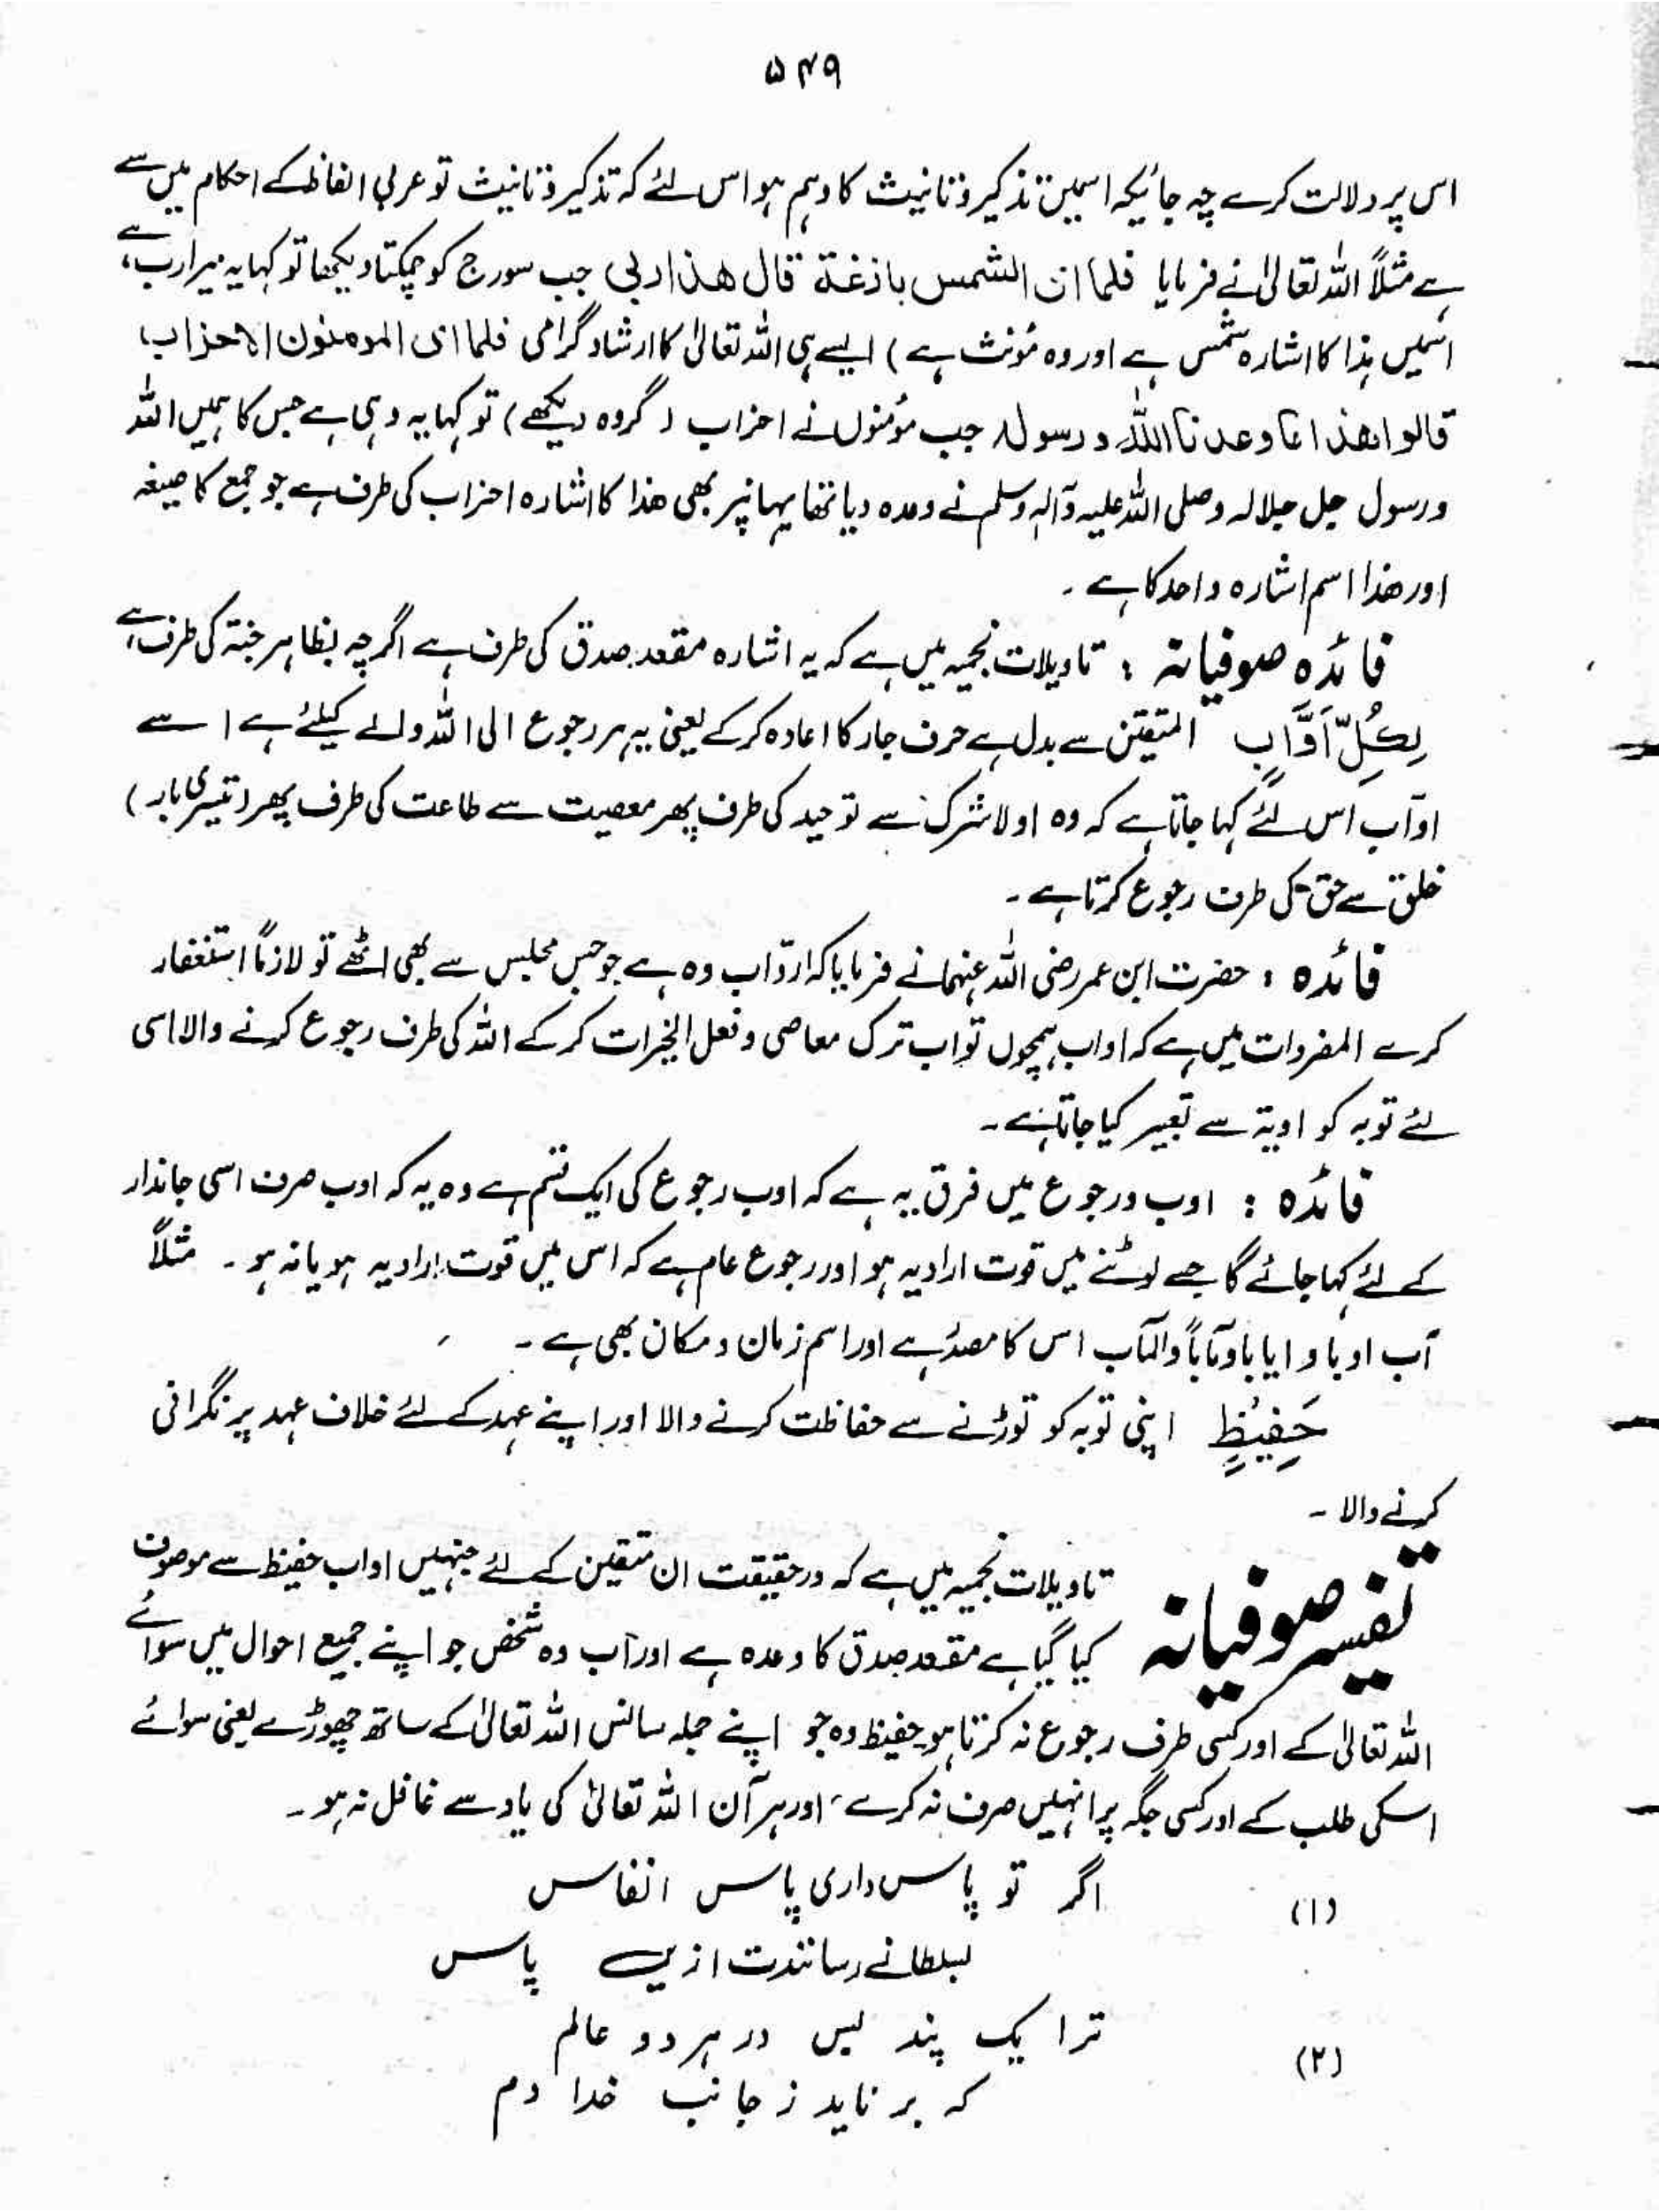 ۵۴۹
اس پر دلالت کرے چہ جائیکہ اسمیں تذکیر و تانیث کا وہم ہو اس لئے کہ تذکیر و تانیث تو عربی الفاظ کے احکام میں سے
ہے مثلاً اللہ تعالیٰ نے فرمایا فلما ان الشمس بازغة قال هذا ربی جب سورج کو چمکتا دیکھا تو کہا یہ میرا رب ہے،
اسمیں ہذا کا اشارہ شمس ہے اور وہ مؤنث ہے) ایسے ہی اللہ تعالیٰ کا ارشاد گرامی فلما ای المومنون الاحزاب
قالوا ھذا ما وعدنا اللہ و رسولہ جب مؤمنوں نے احزاب (گروہ دیکھے) تو کہا یہ وہی ہے جس کا ہمیں اللہ
و رسول جل جلالہ وصلی اللہ علیہ وآلہ وسلم نے وعدہ دیا تھا یہانپر بھی ھذا کا اشارہ احزاب کی طرف ہے جو جمع کا صیغہ
اور ھذا اسم اشارہ واحد کا ہے ۔
فائدہ صوفیانہ : تاویلات نجمیہ میں ہے کہ یہ اشارہ مقعد صدق کی طرف ہے اگرچہ بظاہر جنۃ کی طرف ہے،
لِكُلِّ اَوَّابٍ المتقین سے بدل ہے حرف جار کا اعادہ کرکے یعنی یہ ہر رجوع الی اللہ والے کیلئے ہے اسے
اوآب اس لئے کہا جاتا ہے کہ وہ اولا شرک سے توحید کی طرف پھر معصیت سے طاعت کی طرف پھر (تیسری بار)
خلق سے حق کی طرف رجوع کرتا ہے ۔
فائدہ : حضرت ابن عمر رضی اللہ عنہما نے فرمایا کہ اوّاب وہ ہے جو جس مجلس سے بھی اٹھے تو لازماً استغفار
کرے المفردات میں ہے کہ اواب ہمچوں تواب ترک معاصی و فعل الخیرات کر کے اللہ کی طرف رجوع کرنے والا اسی
لئے توبہ کو اوبۃ سے تعبیر کیا جاتا ہے ۔
فائدہ : اوب و رجوع میں فرق یہ ہے کہ اوب رجوع کی ایک قسم ہے وہ یہ کہ اوب صرف اسی جاندار
کے لئے کہا جائے گا جسے لوٹنے میں قوت ارادیہ ہو اور رجوع عام ہے کہ اس میں قوت ارادیہ ہو یا نہ ہو ۔ مثلاً
آب اوبا و ایابا و مآباً والمآب اس کا مصدر ہے اور اسم زمان و مکان بھی ہے ۔
حَفِيْظٍ اپنی توبہ کو توڑنے سے حفاظت کرنے والا اور اپنے عہد کے لئے خلاف عہد پر نگرانی
کرنے والا ۔
تفسیر صوفیانہ تاویلات نجمیہ میں ہے کہ درحقیقت ان متقین کے لئے جنہیں اواب حفیظ سے موصوف
کیا گیا ہے مقعد صدق کا وعدہ ہے اور آب وہ شخص جو اپنے جمیع احوال میں سوائے
اللہ تعالیٰ کے اور کسی طرف رجوع نہ کرتا ہو حفیظ وہ جو اپنے جملہ سانس اللہ تعالیٰ کے ساتھ چھوڑے یعنی سوائے
اسکی طلب کے اور کسی جگہ پر انہیں صرف نہ کرے، اور ہر آن اللہ تعالیٰ کی یاد سے غافل نہ ہو ۔
(۱) اگر تو پاس داری پاس انفاس
بسلطانے رسانندت ازیں پاس
(۲) ترا یک پند بس در ہر دو عالم
کہ بر ناید ز جانب خدا دم